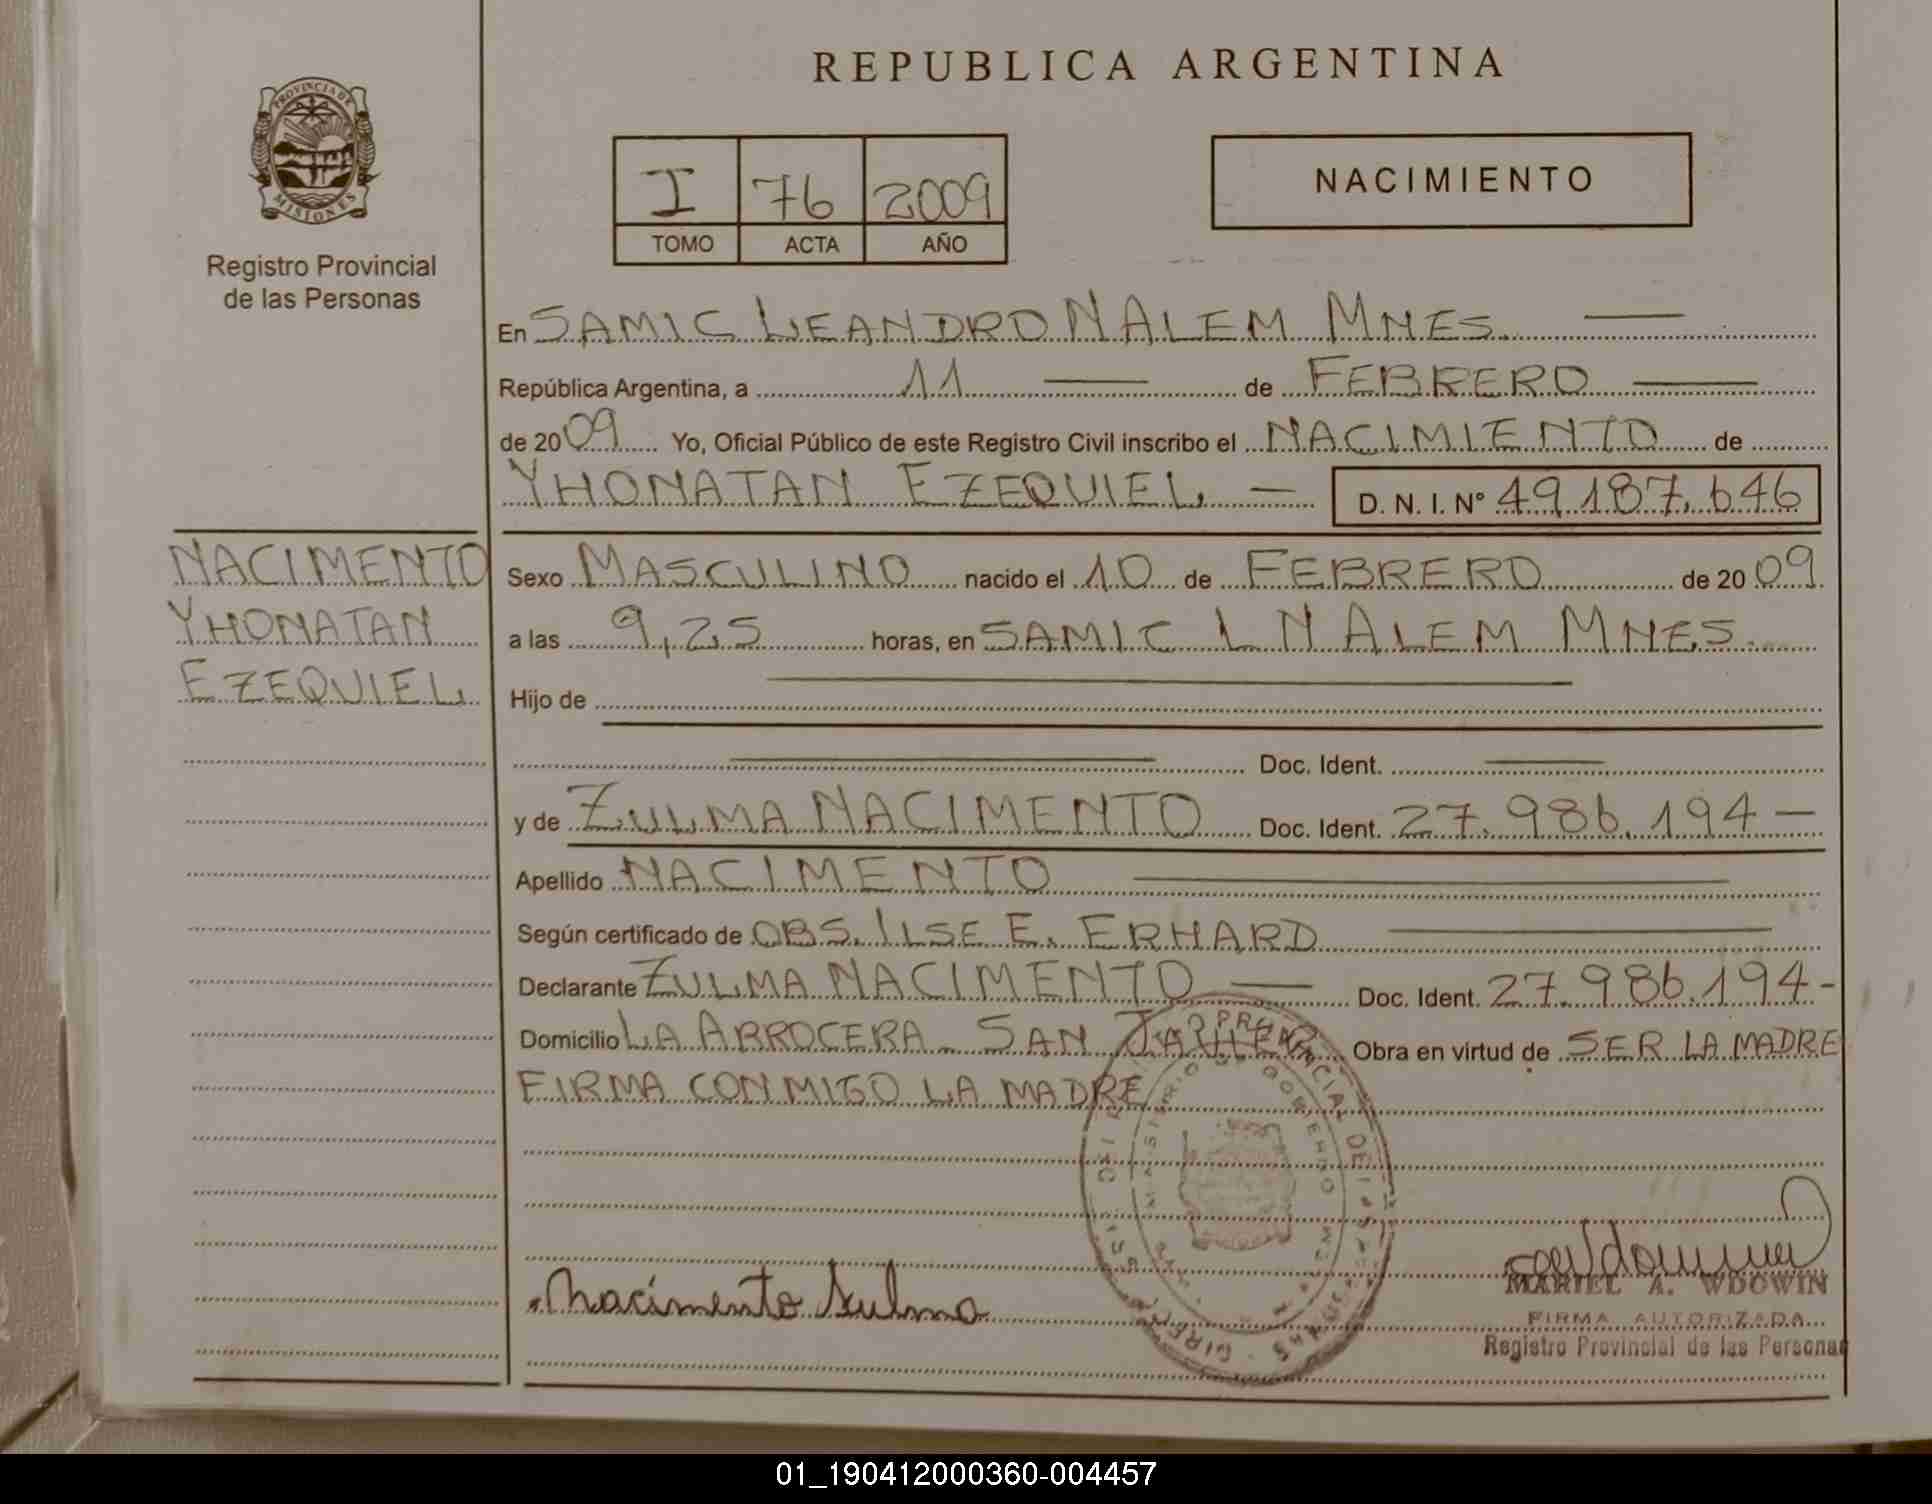 REPUBLICA ARGENTINA
PROVINCIA DE
MISIONES
Registro Provincial
de las Personas
I 76 2009
TOMO ACTA AÑO
NACIMIENTO
En SAMIC LEANDRO N ALEM MNES.
República Argentina, a 11 de FEBRERO
de 2009 Yo, Oficial Público de este Registro Civil inscribo el NACIMIENTO de
YHONATAN EZEQUIEL — D. N. I. N° 49.187.646
NACIMENTO
YHONATAN
EZEQUIEL
Sexo MASCULINO nacido el 10 de FEBRERO de 2009
a las 9,25 horas, en SAMIC L N ALEM MNES.
Hijo de
Doc. Ident.
y de ZULMA NACIMENTO Doc. Ident. 27.986.194 —
Apellido NACIMENTO
Según certificado de OBS. ILSE E. ERHARD
Declarante ZULMA NACIMENTO — Doc. Ident. 27.986.194-
Domicilio LA ARROCERA - SAN JAVIER Obra en virtud de SER LA MADRE
FIRMA CONMIGO LA MADRE
Nacimento Zulma
MARIEL A. WDOWIN
FIRMA AUTORIZADA
Registro Provincial de las Personas
01_190412000360-004457